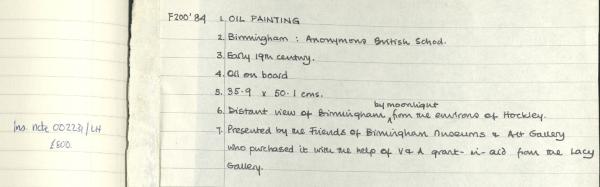 F200'84 1. OIL PAINTING
2. Birmingham : Anonymous British School.
3. Early 19th century.
4. Oil on board
5. 35.9 x 50.1 cms.
by moonlight
6. Distant view of Birmingham from the environs of Hockley.
7. Presented by the Friends of Birmingham Museums & Art Gallery
Ins. note 002231/LH
who purchased it with the help of V & A grant-in-aid from the Lacy
£800.
Gallery.